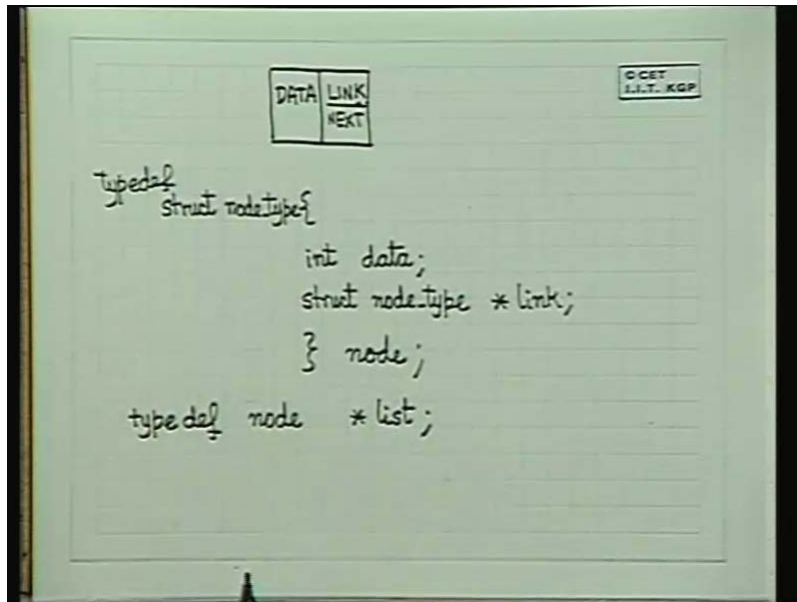 DATA LINK
NEXT
© CET
I.I.T. KGP
typedef
struct node_type{
int data;
struct node_type * link;
} node;
typedef node * list;